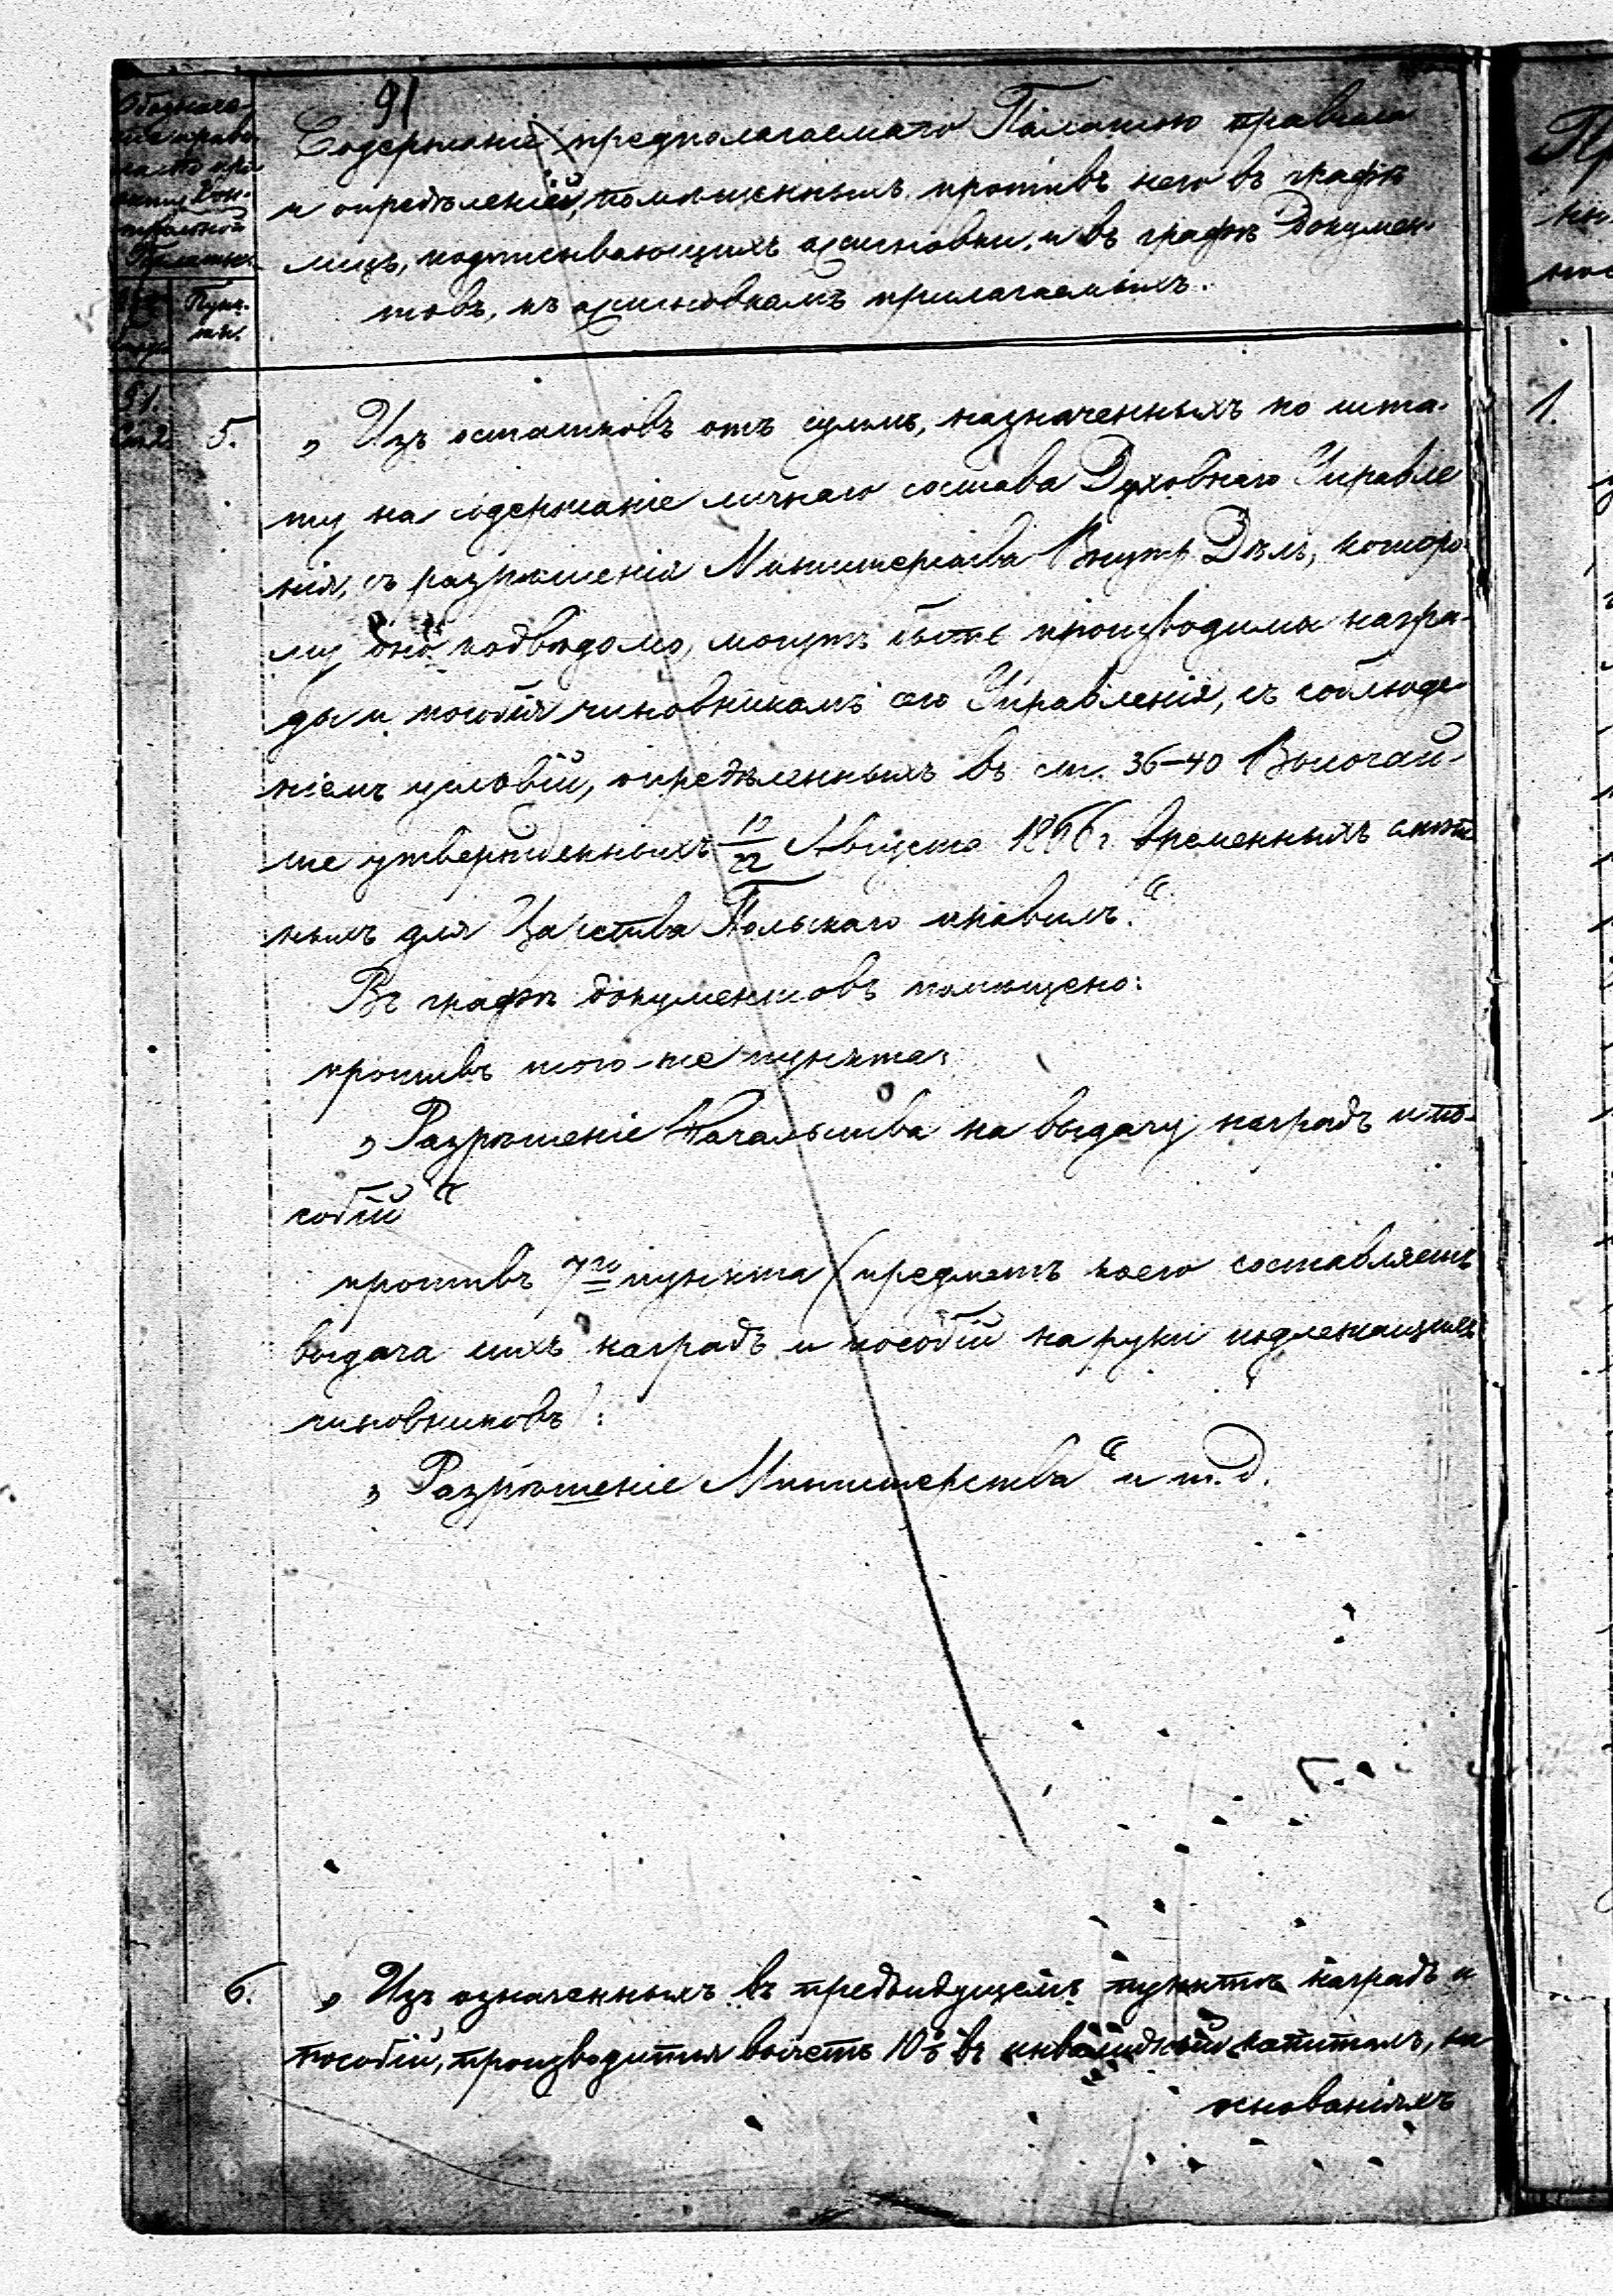 91
Обозначе-
ние прави-
ла по про-
екту Кон-
трольной
Палаты.
Пунк-
ты.
Содержаніе предполагаемаго Палатою правила
и опредѣленій, помѣщенныхъ противъ него въ графѣ
лицъ, подписывающихъ ассигновки, и въ графѣ докумен-
товъ, къ ассигновкамъ прилагаемыхъ.
91.
5.
„Изъ остатковъ отъ суммъ, назначенныхъ по шта-
ту на содержаніе личнаго состава Духовнаго Управле
нія, съ разрѣшенія Министерства Внутр. Дѣлъ, которо-
му оно подвѣдомо, могутъ быть производимы награ-
ды и пособія чиновникамъ сего Управленія, съ соблюде-
ніемъ условій, опредѣленныхъ въ ст. 36–40 Высочай-
ше утвержденныхъ 10/22 Августа 1866 г. временныхъ смѣт-
ныхъ для Царства Польскаго правилъ.“
Въ графѣ документовъ помѣщено:
противъ того-же пункта:
„Разрѣшеніе Начальства на выдачу наградъ и по-
собій“
противъ 7го пункта (предметъ коего составляетъ
выдача сихъ наградъ и пособій на руки подлежащихъ
чиновниковъ):
„Разрѣшеніе Министерства“ и т. д.
6.
„Изъ означенныхъ въ предъидущемъ пунктѣ наградъ и
пособій, производится вычетъ 10% въ инвалидный капиталъ, на
основаніяхъ
1.